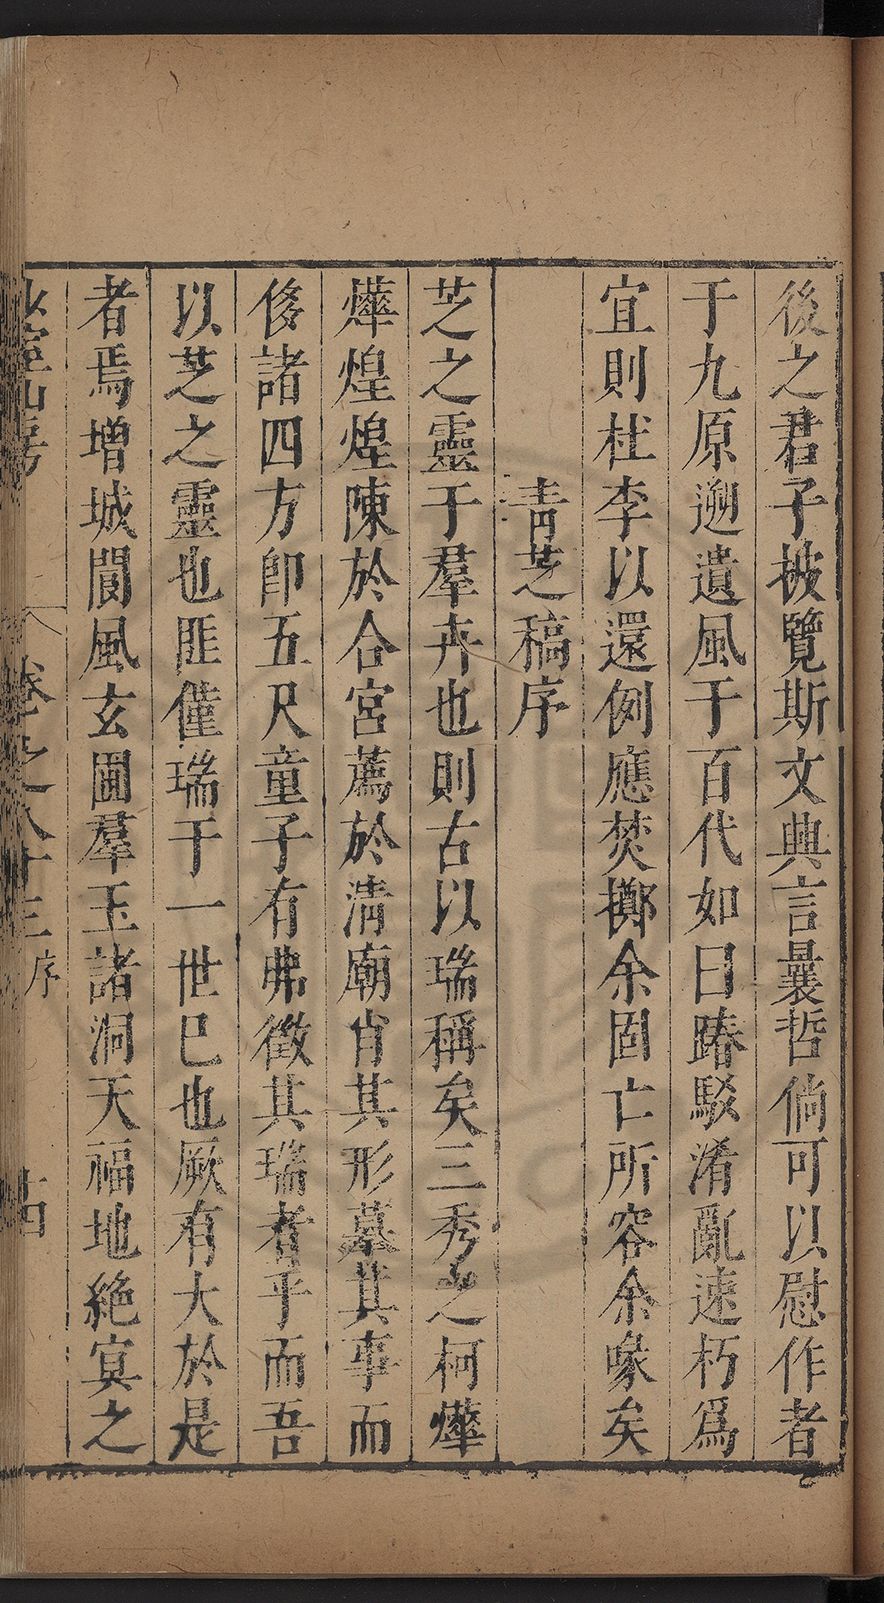 後之君子披覽斯文典言曩哲倘可以慰作者
于九原遡遺風于百代如曰踳駁淆亂速朽爲
宜則杜李以還例應焚擲余固亡所容余喙矣
青芝稿序
芝之靈于羣卉也則古以瑞稱矣三秀之柯燁
燁煌煌陳於合宮薦於淸廟肖其形摹其事而
侈諸四方卽五尺童子有弗徵其瑞者乎而吾
以芝之靈也匪僅瑞于一世巳也厥有大於是
者焉增城閬風玄圃羣玉諸洞天福地絶寘之
山房
卷之八十三序
十四